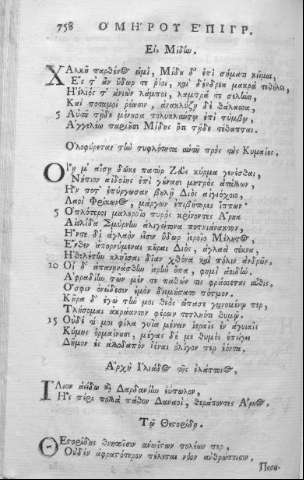 758 ΟΜΗΡΟΥ ΕΠΙΓΡ.
Εἰς Μίδην.
Χαλκῆ παρθένος εἰμὶ, Μίδα δ' ἐπὶ σήματι κεῖμαι,
Ες τ' ἂν ὕδωρ τε ῥέῃ, καὶ δένδρεα μακρὰ τεθήλῃ,
Ηέλιός τ' ἀνιὼν λάμπῃ, λαμπρά τε σελήνη,
Καὶ ποταμοὶ ῥώωσιν, ἀνακλύζῃ δὲ θάλασσα·
5 Αὐτοῦ τῇδε μένουσα πολυκλαύτῳ ἐπὶ τύμβῳ,
Αγγελέω παριοῦσι Μίδης ὅτι τῇδε τέθαπται.
Ολοφύρεται τὴν τυφλότητα αὐτοῦ πρὸς τοὺς Κυμαίους.
Οἵῃ μ' αἴσῃ δῶκε πατὴρ Ζεὺς κύρμα γενέσθαι,
Νήπιον αἰδοίης ἐπὶ γούνασι μητρὸς ἀτάλλων,
Ην ποτ' ἐπύργωσαν βουλῇ Διὸς αἰγιόχοιο,
Λαοὶ Φρίκωνος, μάργων ἐπιβήτορες ἵππων
5 Οπλότεροι μαλεροῖο πυρὸς κρίνοντες Αρηα
Αἰολίδα Σμύρνην ἁλιγείτονα ποτνιάνακτον,
Ηντε δι' ἀγλαὸν εἶσιν ὕδωρ ἱεροῖο Μέλητος·
Ενθεν ἀπορνύμεναι κοῦραι Διὸς, ἀγλαὰ τέκνα,
Ηθελέτην κλῇσαι δῖαν χθόνα καὶ πόλιν ἀνδρῶν,
10 Οἱ δ' ἀπανηνάσθην ἱερὴν ὄπα, φῆμιν ἀοιδῆς.
Αφραδίῃ τῶν μέν τε παθών τις φράσσεται αὖθις,
Οσφιν ὀνείδεσσιν ἐμὸν διεμήσατο πότμον.
Κῆρα δ' ἐγὼ τήν μοι θεὸς ὤπασε γεινομένῳ περ,
Τλήσομαι ἀκράαντον φέρων τετληότι θυμῷ.
15 Οὐδέ τί μοι φίλα γυῖα μένειν ἱεραῖς ἐν ἀγυιαῖς
Κύμης ὁρμαίνουσι, μέγας δέ με θυμὸς ἐπείγει
Δῆμον ἐς ἀλλοδαπὸν ἰέναι ὀλίγον περ ἐόντα.
Αρχὴ Ιλιάδος τῆς ἐλάττονος,
Ιλιον ἀείδω καὶ Δαρδανίην εὔπωλον,
Ης πέρι πολλὰ πάθον Δαναοὶ, θεράποντες Αρηος.
Τῷ Θεστορίδῃ.
Θεστορίδης θνητοῖσιν ἀνωΐστων πολέων περ,
Οὐδὲν ἀφραστότερον πέλεται νόου ἀνθρώποισιν.
Ποσει-